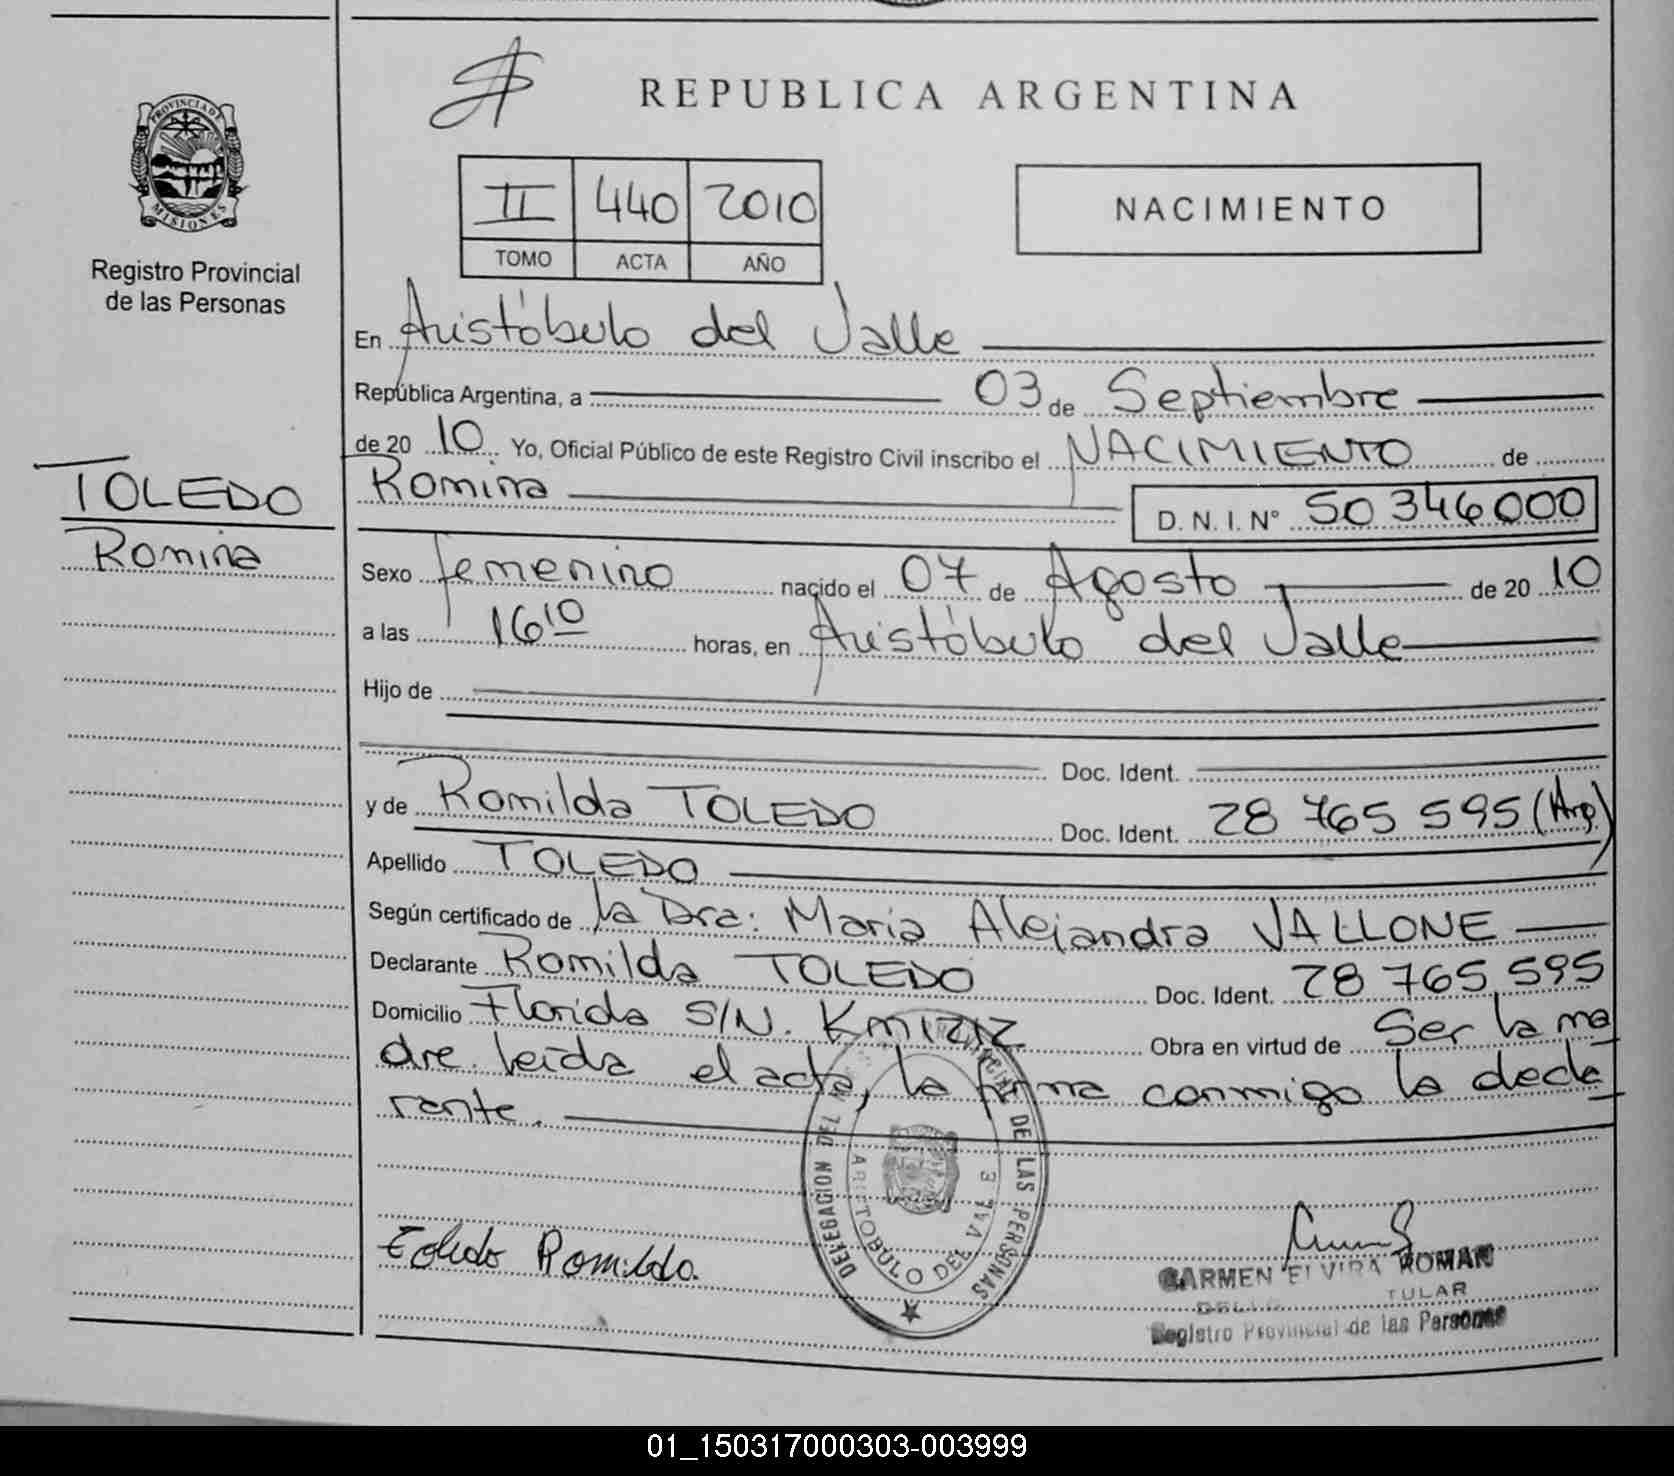 REPUBLICA ARGENTINA
PROVINCIA DE MISIONES
Registro Provincial
de las Personas
II 440 2010
TOMO ACTA AÑO
NACIMIENTO
En Aristóbulo del Valle
República Argentina, a 03 de Septiembre
de 20 10 Yo, Oficial Público de este Registro Civil inscribo el NACIMIENTO de
Romina D. N. I. N° 50 346 000
TOLEDO
Romina
Sexo femenino nacido el 07 de Agosto de 20 10
a las 16 10 horas, en Aristóbulo del Valle
Hijo de
Doc. Ident.
y de Romilda TOLEDO Doc. Ident. 28 765 595 (Arg)
Apellido TOLEDO
Según certificado de la Dra: Maria Alejandra VALLONE
Declarante Romilda TOLEDO Doc. Ident. 28 765 595
Domicilio Florida S/N. Km 1212 Obra en virtud de Ser la ma
dre. leída el acta, la firma conmigo la decla
rante.
DELEGACION DEL DE LAS PERSONAS
ARISTOBULO DEL VALLE
Toledo Romilda.
CARMEN ELVIRA ROMAN
TULAR
Registro Provincial de las Personas
01_150317000303-003999